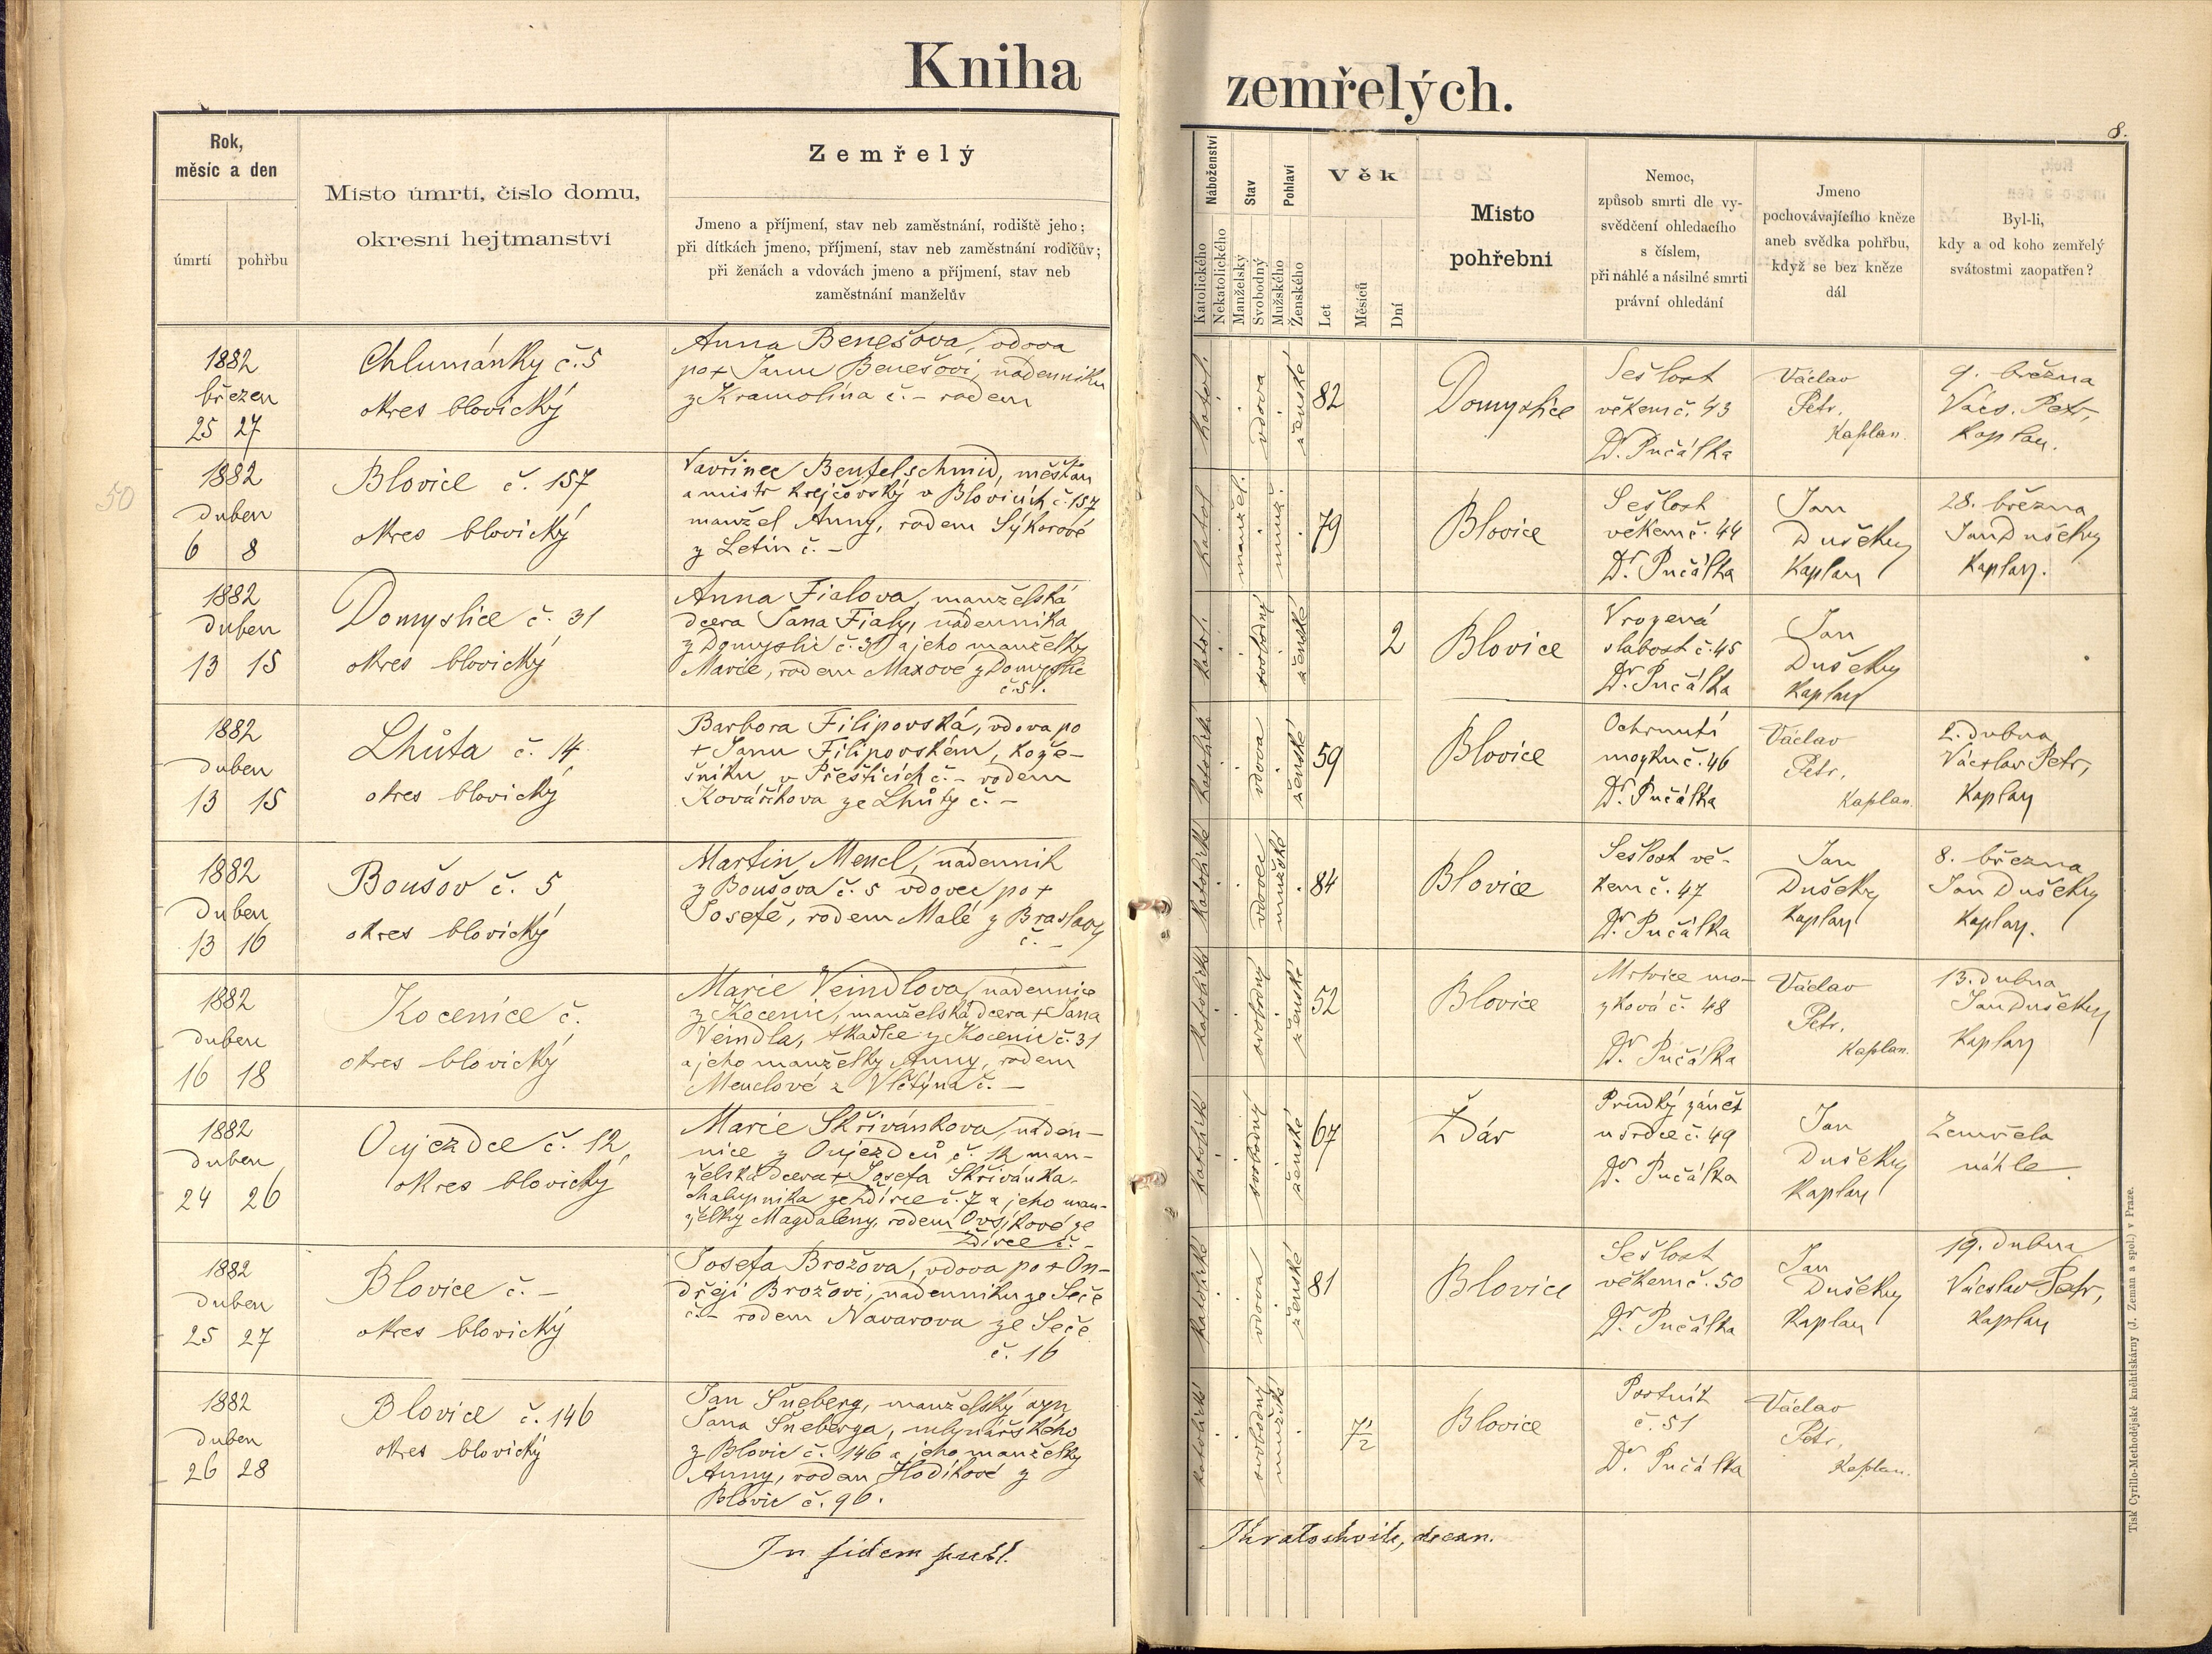 Kniha zemřelých.
8.
Rok,
měsíc a den
úmrtí
pohřbu
Místo úmrtí, číslo domu,
okresní hejtmanství
Zemřelý
Jmeno a příjmení, stav neb zaměstnání, rodiště jeho;
při dítkách jmeno, příjmení, stav neb zaměstnání rodičův;
při ženách a vdovách jmeno a příjmení, stav neb
zaměstnání manželův
Náboženství
Katolického
Nekatolického
Stav
Manželský
Svobodný
Pohlaví
Mužského
Ženského
Věk
Let
Měsíců
Dní
Místo
pohřební
Nemoc,
způsob smrti dle vy-
svědčení ohledacího
s číslem,
při náhlé a násilné smrti
právní ohledání
Jmeno
pochovávajícího kněze
aneb svědka pohřbu,
když se bez kněze
dál
Byl-li,
kdy a od koho zemřelý
svátostmi zaopatřen?
1882
březen
25 27
Chlumánky č. 5
okres blovický
Anna Benešova, vdova
po + Janu Benešovi, nádenníku
z Kramolína č. – rodem
katol.
vdova
ženské
82
Domyslice
Sešlost
věkem č. 43
Dr. Pučálka
Václav
Petr,
Kaplan.
9. března
Václ. Petr,
Kaplan.
50
1882
duben
6 8
Blovice č. 157
okres blovický
Vavřinec Beutelschmid, měšťan
a mistr krejčovský v Blovicích č. 157
manžel Anny, rodem Sýkorové
z Letin č. –
katol.
manžel.
muž.
79
Blovice
Sešlost
věkem č. 44
Dr. Pučálka
Jan
Dušeky
Kaplan
28. března
Jan Dušeky
Kaplan.
1882
duben
13 15
Domyslice č. 31
okres blovický
Anna Fialova, manželská
dcera Jana Fialy, nádenníka
z Domyslic č. 31 a jeho manželky
Marie, rodem Maxové z Domyslic
č. 51.
katol.
svobodný
ženské
2
Blovice
Vrozená
slabost č. 45
Dr. Pučálka
Jan
Dušeky
Kaplan
1882
duben
13 15
Lhůta č. 14
okres blovický
Barbora Filipovská, vdova po
+ Janu Filipovském, kože-
šníku v Přešticích č. – rodem
Kovaříkova ze Lhůty č. –
katolické
vdova
ženské
59
Blovice
Ochrnutí
mozku č. 46
Dr. Pučálka
Václav
Petr,
Kaplan.
2. dubna
Václav Petr,
Kaplan
1882
duben
13 16
Boušov č. 5
okres blovický
Martin Mencl, nádenník
z Boušova č. 5 vdovec po +
Josefě, rodem Malé z Braslavy
č. –
katolické
vdovec
mužské
84
Blovice
Sešlost vě-
kem č. 47
Dr. Pučálka
Jan
Dušeky
Kaplan
8. března
Jan Dušeky
Kaplan.
1882
duben
16 18
Kocenice č.
okres blovický
Marie Veindlova, nádennice
z Kocenic, manželská dcera + Jana
Veindla, tkadlce z Kocenic č. 31
a jeho manželky Anny, rodem
Menclové z Vlčtýna č. –
katolické
svobodný
ženské
52
Blovice
Mrtvice mo-
zková č. 48
Dr. Pučálka
Václav
Petr,
Kaplan.
13. dubna
Jan Dušeky
Kaplan
1882
duben
24 26
Oujezdec č. 12,
okres blovický
Marie Skřivánkova, náden-
nice z Oujezdců č. 12 man-
želská dcera + Josefa Skřivánka,
chalupníka ze Ždírce č. 7 a jeho man-
želky Magdaleny, rodem Ovsíkové ze
Ždírce č. –
katolické
svobodný
ženské
67
Ždár
Prudký zánět
u srdce č. 49
Dr. Pučálka
Jan
Dušeky
Kaplan
Zemřela
náhle
1882
duben
25 27
Blovice č. –
okres blovický
Josefa Brožova, vdova po + On-
dřeji Brožovi, nádenníku ze Seče
č. – rodem Navarova ze Seče
č. 16
katolické
vdova
ženské
81
Blovice
Sešlost
věkem č. 50
Dr. Pučálka
Jan
Dušeky
Kaplan
19. dubna
Václav Petr,
Kaplan
1882
duben
26 28
Blovice č. 146
okres blovický
Jan Šneberg, manželský syn
Jana Šneberga, mlynářského
z Blovic č. 146 a jeho manželky
Anny, rodem Hodíkové z
Blovic č. 96.
katolické
svobodný
mužské
7/2
Blovice
Psotník
č. 51
Dr. Pučálka
Václav
Petr,
Kaplan.
In fidem
decan.
Tisk Cyrillo-Methodějské knihtiskárny (J. Zeman a spol.) v Praze.